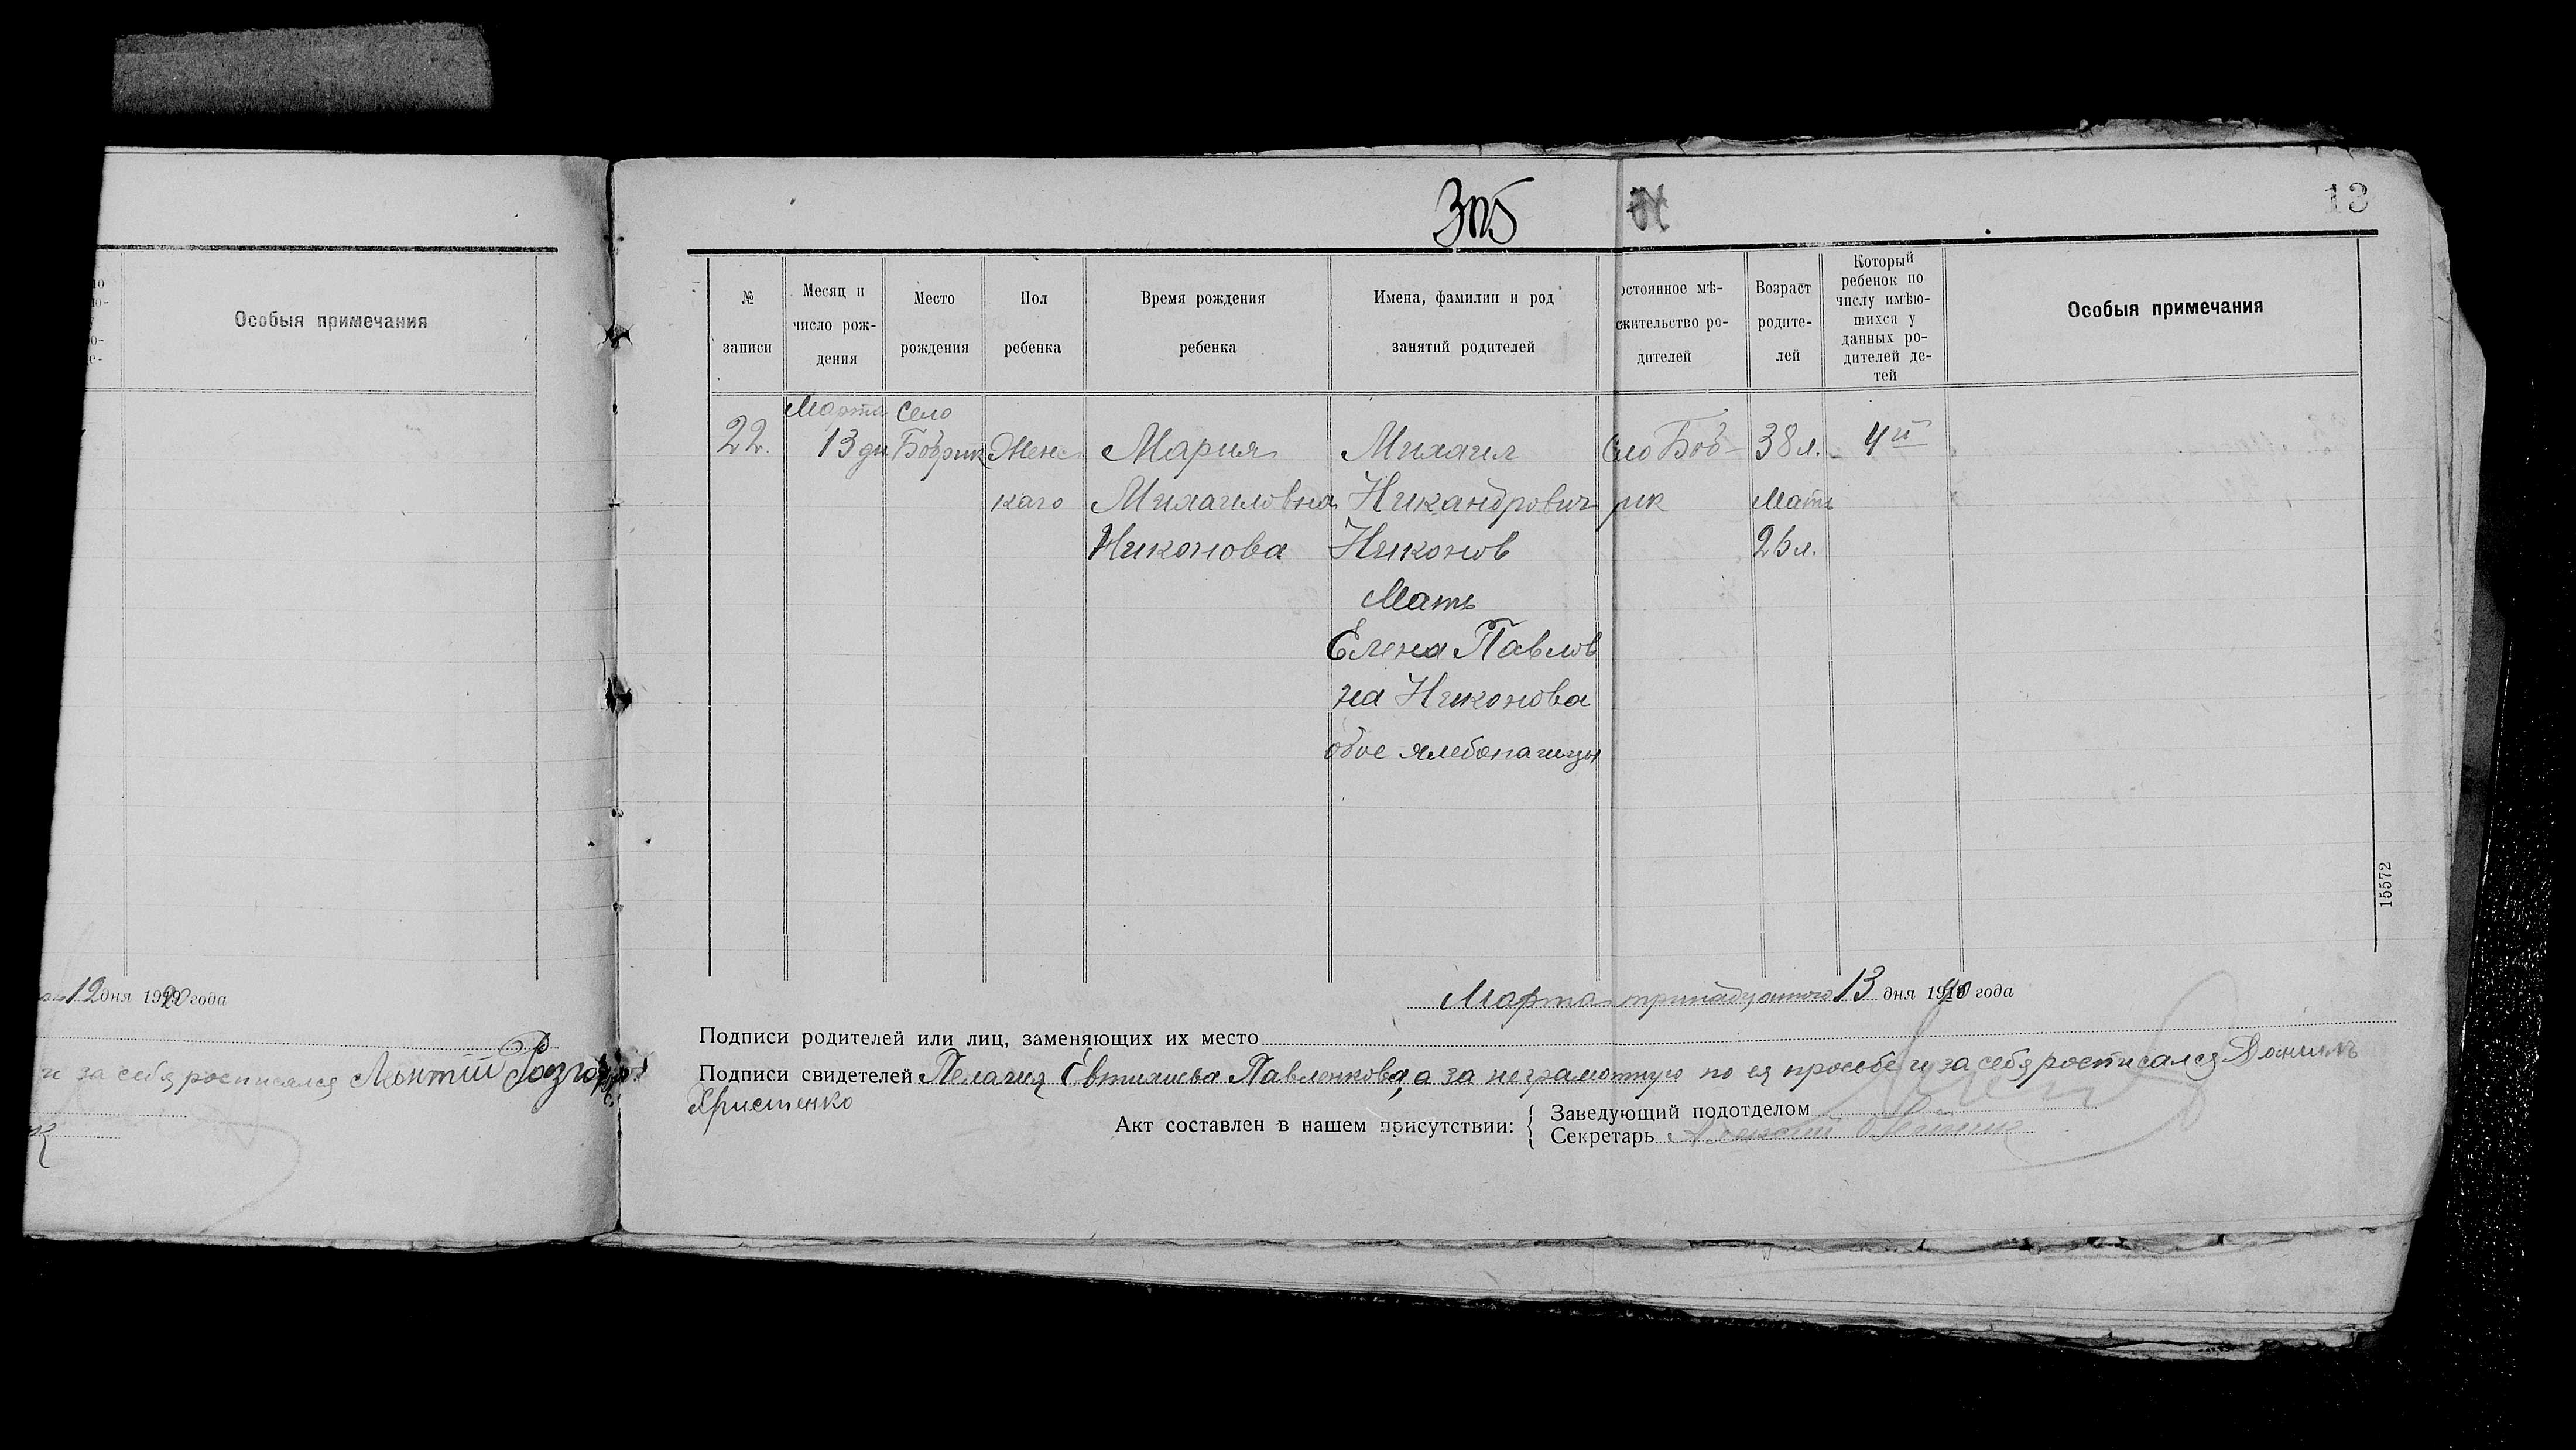 Особыя примечания
12 дня 1920 года
и за себя росписался Леонтий
305
13
№ записи
Месяц и число рож-дения
Место рождения
Пол ребенка
Время рождения ребенка
Имена, фамилии и род занятий родителей
остоянное мѣ-
жительство ро-
дителей
Возраст родите-лей
Который ребенок по числу имѣю-щихся у данных ро-дителей де-тей
Особыя примечания
Марта Село
22. 13 дн Бобрик Женс Мария Михаил Село Боб- 38 л. 4й
каго Михаиловна Никандрович рик Мать
Никонова Никонов 26 л.
Мать
Елена Павлов
на Никонова
обое хлебопашцы
15572
Марта тринадцатого 13 дня 1920 года
Подписи родителей или лиц, заменяющих их место
Подписи свидетелей Пелагия Евтихиева Павленкова, а за неграмотную по ея прозбе и за себя росписался Данилъ
Христенко
Акт составлен в нашем присутствии:
Заведующий подотделом
Секретарь